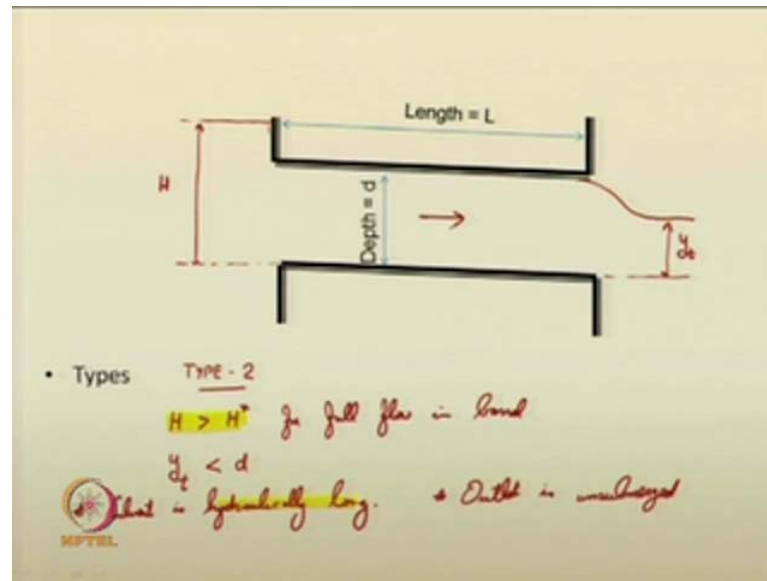 Length = L
H
Depth = d
yt
• Types TYPE - 2
H > H* for full flow in barrel
yt < d
is hydraulically long. * Outlet is unsubmerged
NPTEL